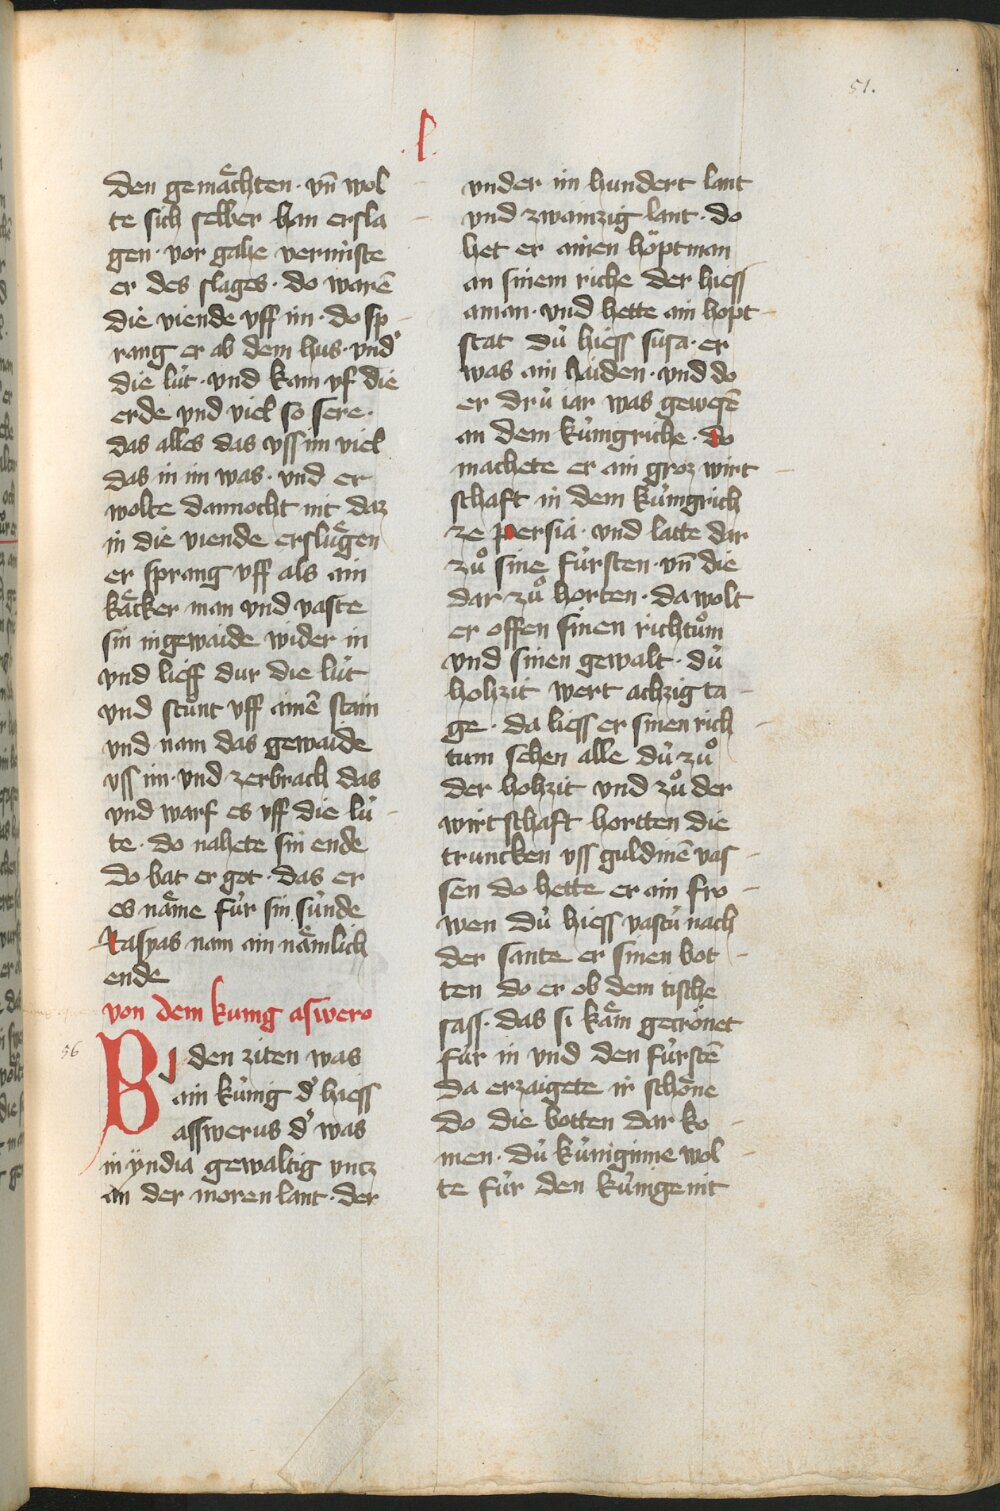 51.
l
den gemaͤchten · vn̄ wol
te sich selber han ersla
gen · vor gahe vermiste
er des slages · do warē
die viende vff im · do sp
rang er ab dem hus · vnd'
die luͤt · vnd kam vf die
erde vnd viel so sere ·
das alles das vss im viel
das in im was · vnd er
wolte dannocht nit daz
in die viende ersluͤgen
er sprang vff als ain
kaͤcker man vnd vaste
sin ingewaide wider in
vnd lieff dur die luͤt
vnd stuͦnt vff ainē stain
vnd nam das gewaide
vss im · vnd zerbrach das
vnd warf es vff die luͤ
te · do nahete sin ende
do bat er got · das er
es naͤme fuͤr sin suͤnde
Rasyas nam ain naͤmlich
ende
von dem kunig aswero
56
BJ den ziten was
ain kuͤnig d' hiess
asswerus d' was
in yndia gewaltig vntz
an der moren lant · der
vnder im hundert lant
vnd zwainzig lant · do
het er ainen hoͤptman
an sinem riche der hiess
aman · vnd hette ain hopt
stat duͤ hiess susa · er
was ain haiden · vnd do
er druͤ iar was gewesē
an dem kuͤnigriche · do
machete er ain groz wirt
schaft in dem kuͤnigrich
ze persia · vnd latte dar
zuͦ sine fuͤrsten · vn̄ die
dar zuͦ horten · da wolt
er offen sinen richtuͦm
vnd sinen gewalt · duͤ
hohzit wert achzig ta
ge · da liess er sinen rich
tum sehen alle duͤ zuͦ
der hohzit vnd zuͦ der
wirtschaft hortten die
truncken vss guldinē vas
sen do hette er ain fro
wen duͤ hiess vastuͤ nach
der sante er sinen bot
ten do er ob dem tische
sass · das si kaͤm gecroͤnet
fuͤr in vnd den fuͤrstē
da erzaigete ir schoͤne
do die botten dar ko
men · duͤ kuͤniginne wol
te fuͤr den kuͤnige nit